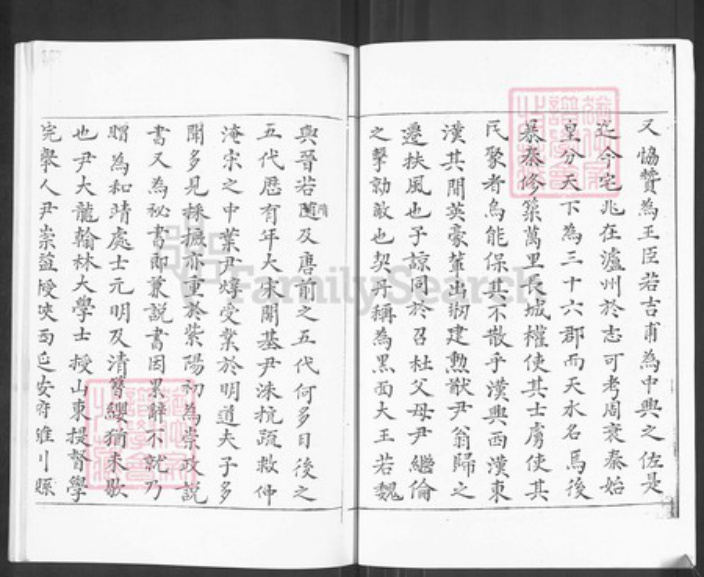 又恊贊為王臣若吉甫為中興之佐是
迄今宅兆在瀘州於志可考周衰秦始
皇分天下為三十六郡而天水名焉後
暴秦修築萬里長城權使其士虜使其
民聚者烏能保其不散乎漢興西漢東
漢其間英豪輩出勷建勲猷尹翁歸之
遷扶風也予諒同於召杜父母尹繼倫
之擊勍敵也契丹稱為黑面大王若魏
與晉若隋及唐前之五代何多日後之
五代歷有年大宋開基尹洙抗疏救仲
淹宋之中葉尹焞受業於明道夫子多
聞多見採摭亦重於紫陽初為崇政說
書又為祕書郎兼説書因累辭不就乃
贈為和靖處士元明及清簪纓猶未歇
也尹大龍翰林大學士授山東提督學
院舉人尹崇謚授陝西延安府雒川縣
FamilySearch